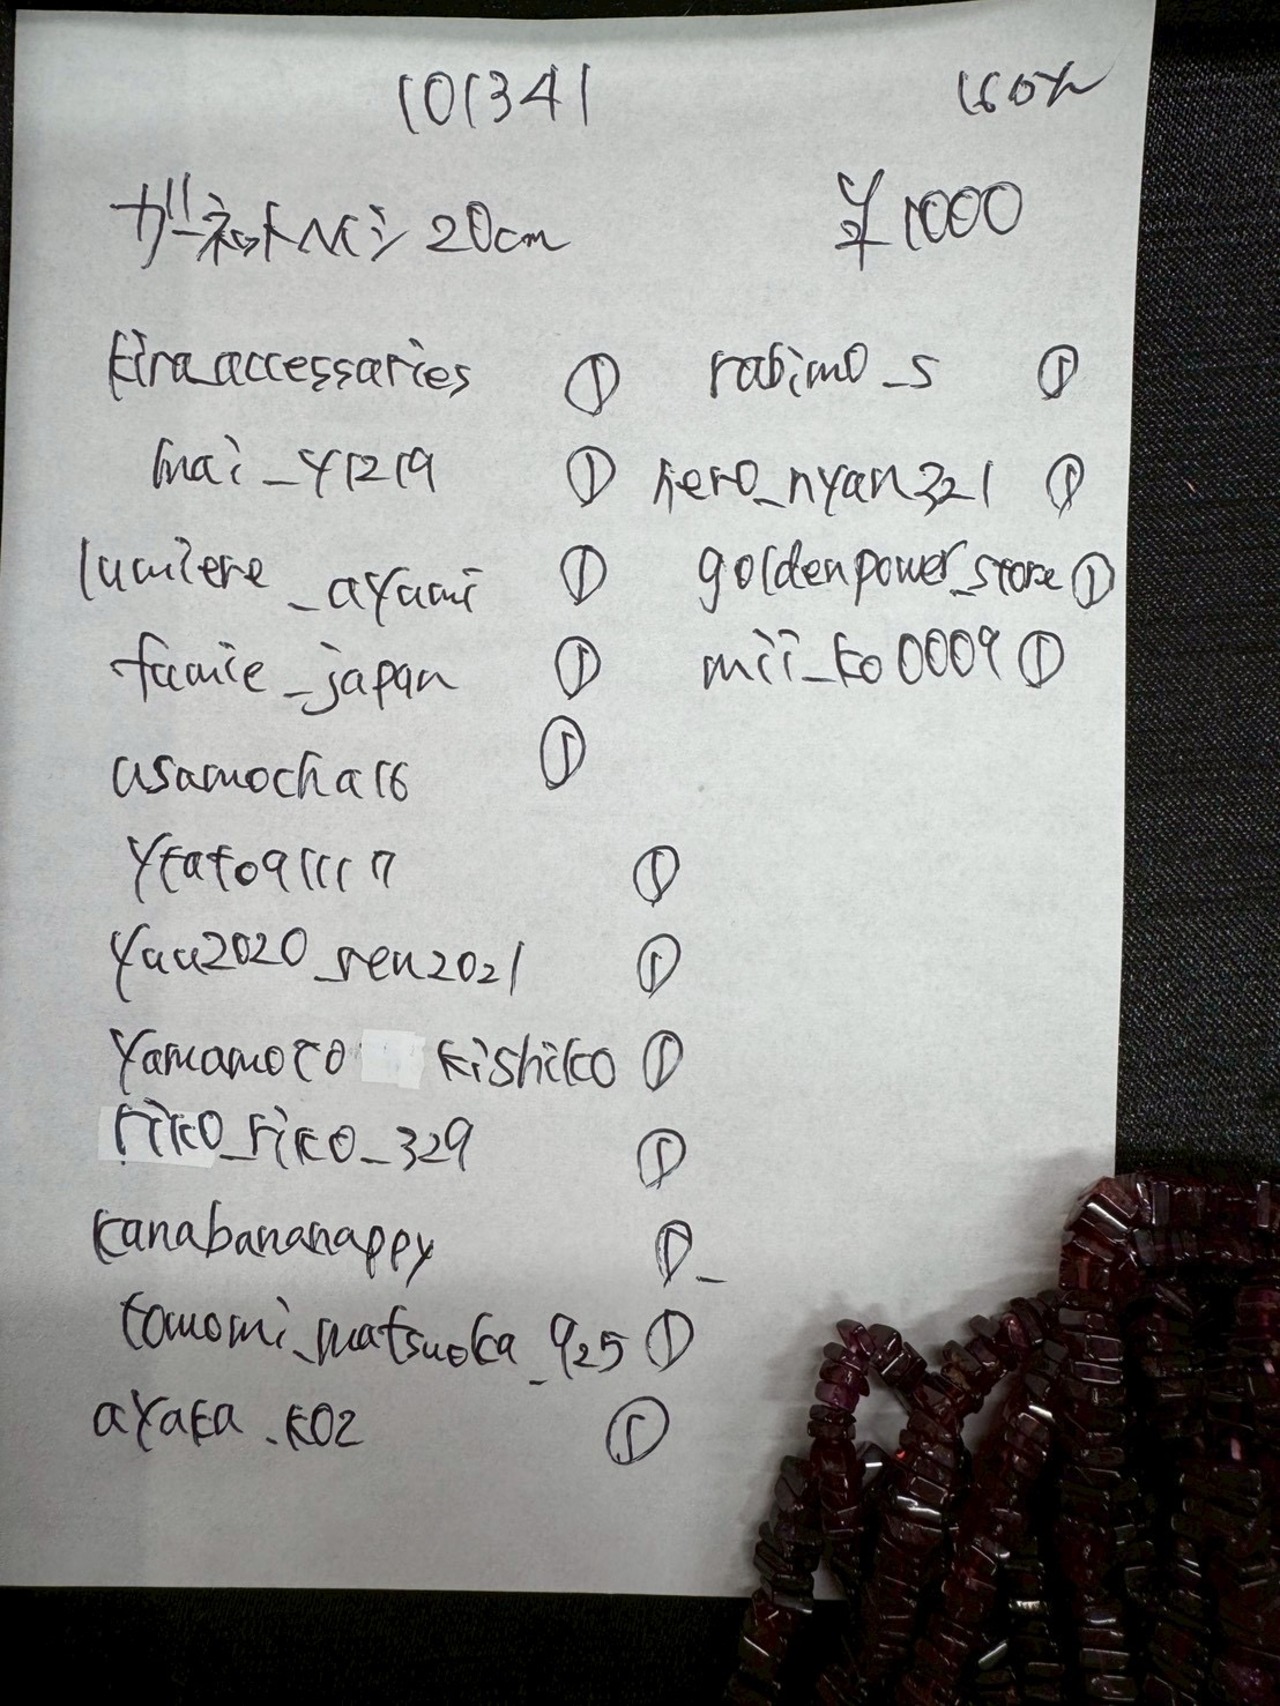 101341
160本
ガーネットヘイシ 20cm
¥1000
kira_accessaries ①
mai_y1219 ①
lumiere_ayami ①
fumie_japan ①
asamocha16 ①
ytato91117 ①
yuu2020_ren2021 ①
yamamoto kishiko ①
riko_riko_329 ①
kanabananappy ①
tomomi_matsuoka_925 ①
ayaka.k02 ①
rabimo_s ①
nero_nyan321 ①
goldenpower_store ①
mii_ko0009 ①